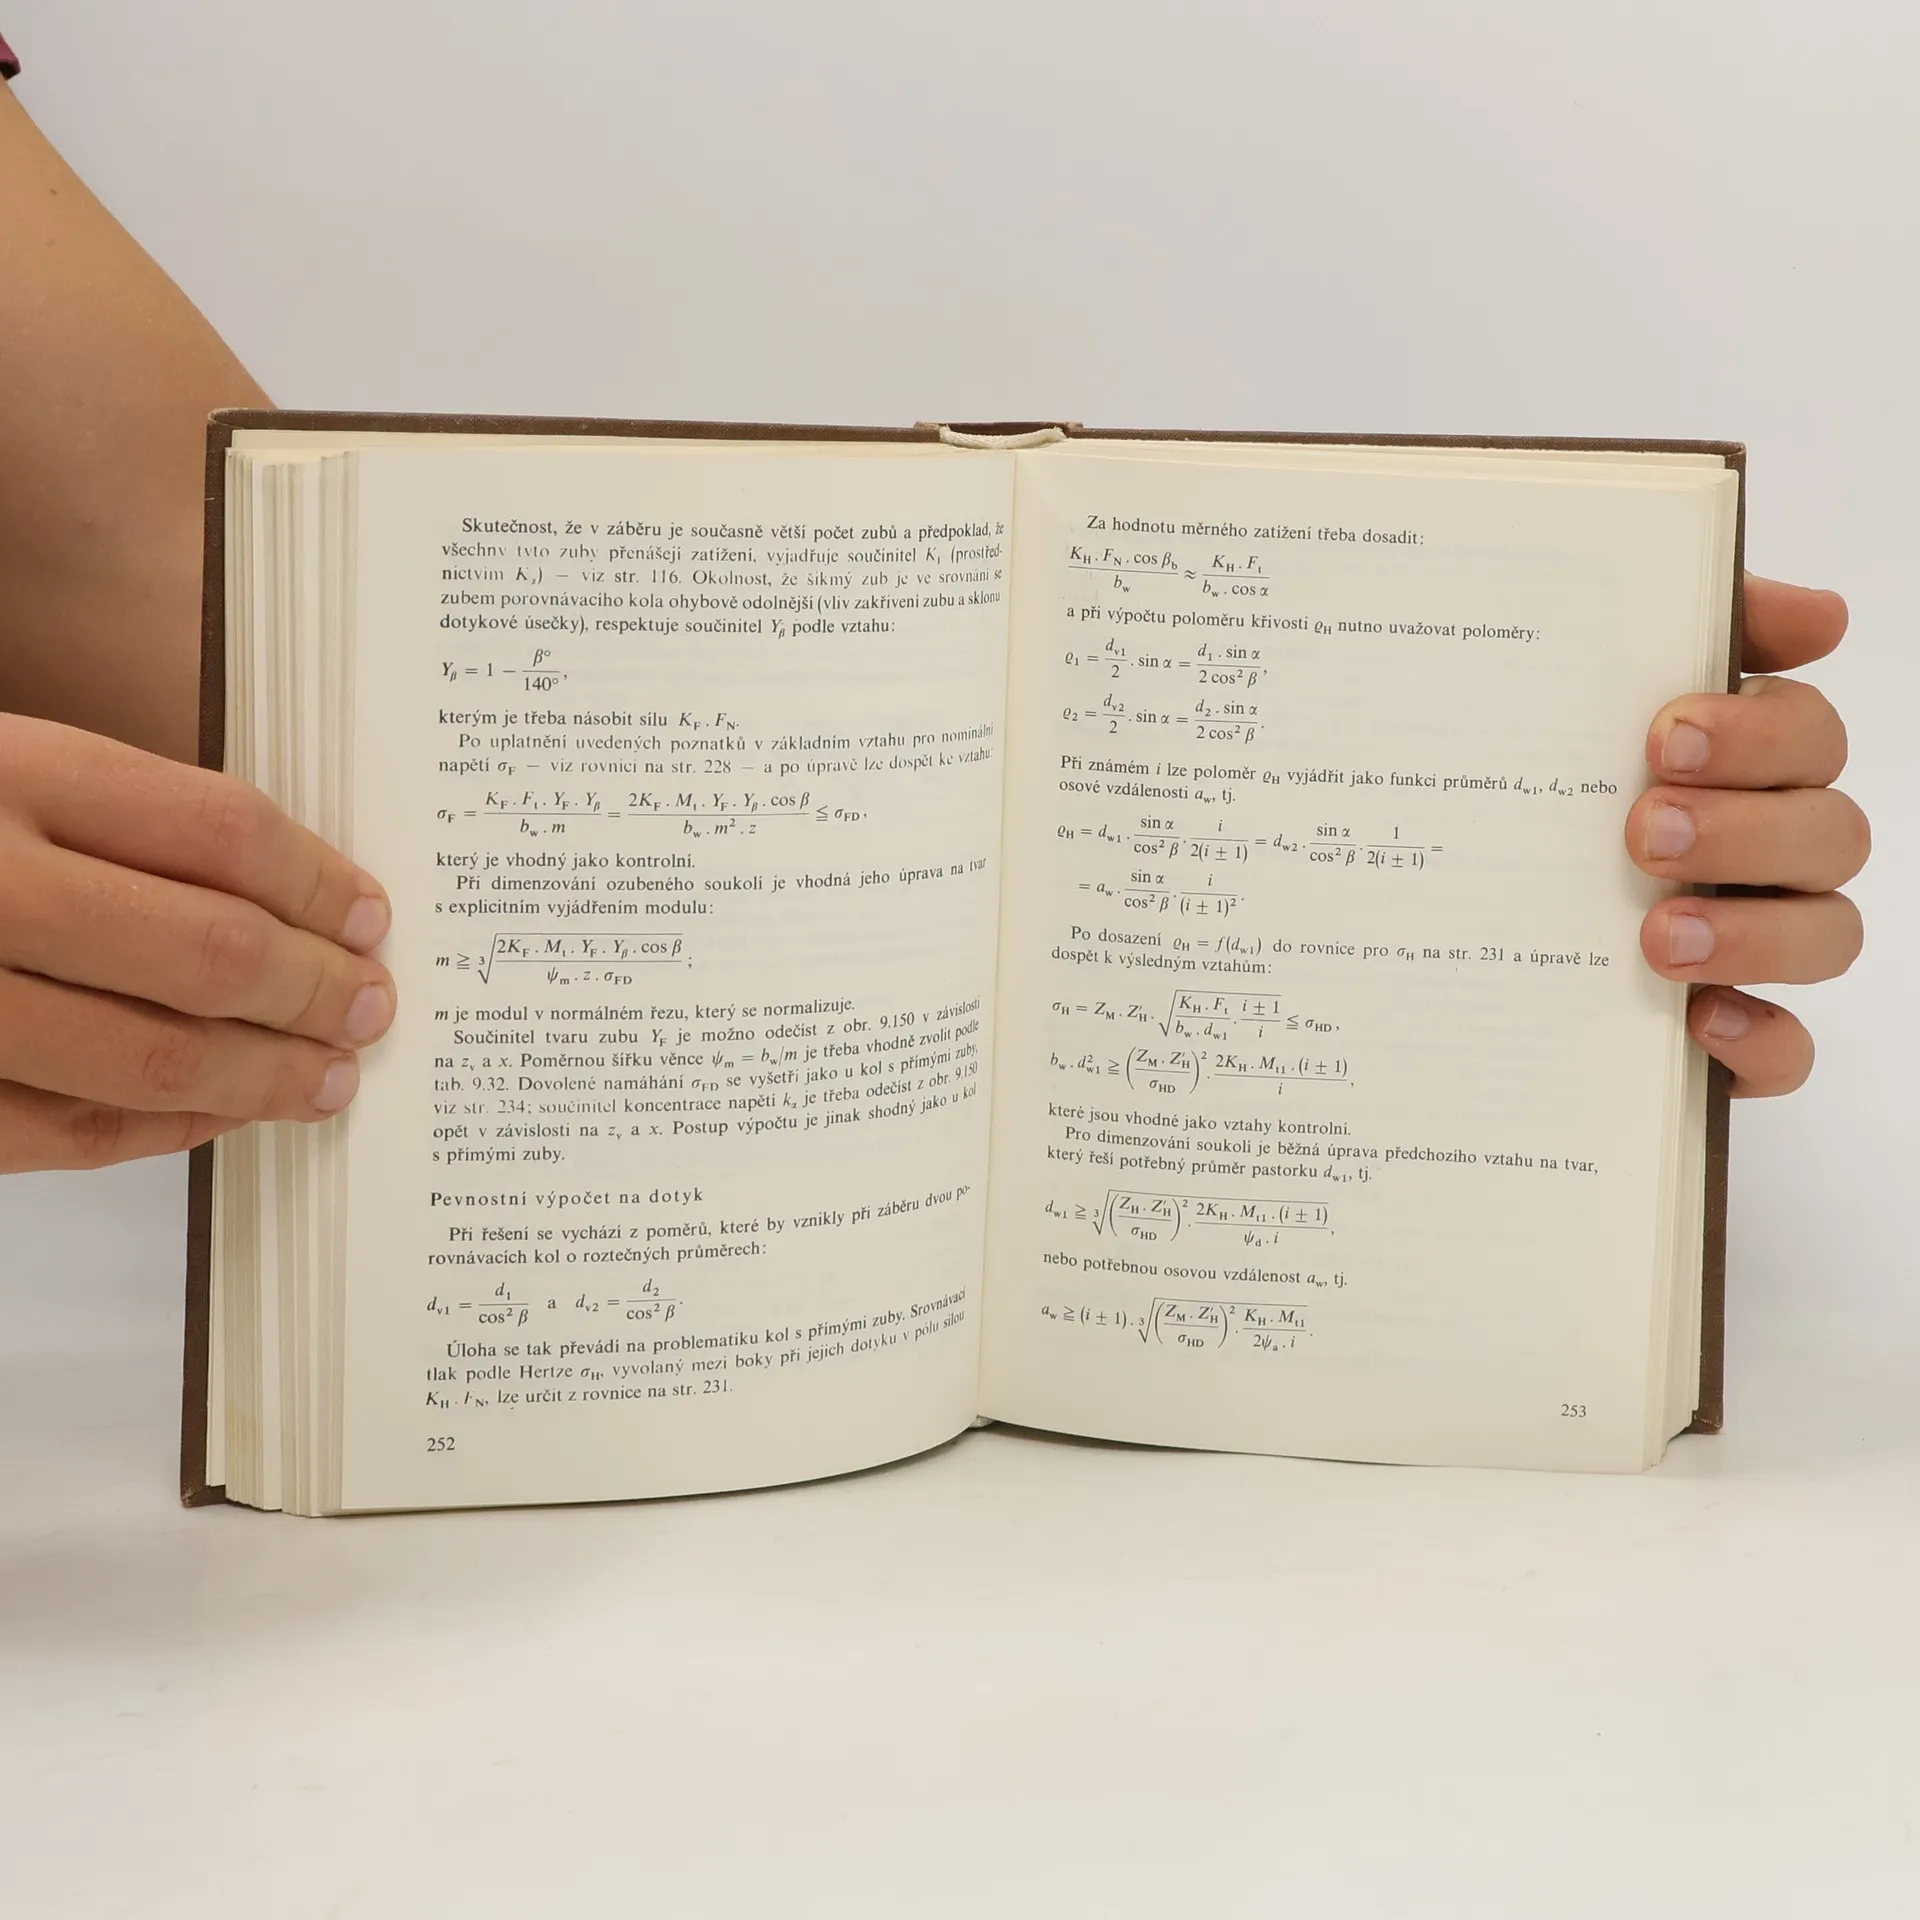 Skutečnost, že v záběru je současně větší počet zubů a předpoklad, že
všechny tyto zuby přenášejí zatížení, vyjadřuje součinitel K_t (prostřed-
nictvím K_z) — viz str. 116. Okolnost, že šikmý zub je ve srovnání se
zubem porovnávacího kola ohybově odolnější (vliv zakřivení zubu a sklonu
dotykové úsečky), respektuje součinitel Y_β podle vztahu:
Y_β = 1 − β°/140°,
kterým je třeba násobit sílu K_F . F_N.
Po uplatnění uvedených poznatků v základním vztahu pro nominální
napětí σ_F — viz rovnici na str. 228 — a po úpravě lze dospět ke vztahu:
σ_F = (K_F . F_t . Y_F . Y_β)/(b_w . m) = (2K_F . M_t . Y_F . Y_β . cos β)/(b_w . m² . z) ≦ σ_FD,
který je vhodný jako kontrolní.
Při dimenzování ozubeného soukolí je vhodná jeho úprava na tvar
s explicitním vyjádřením modulu:
m ≧ ³√((2K_F . M_t . Y_F . Y_β . cos β)/(ψ_m . z . σ_FD));
m je modul v normálném řezu, který se normalizuje.
Součinitel tvaru zubu Y_F je možno odečíst z obr. 9.150 v závislosti
na z_v a x. Poměrnou šířku věnce ψ_m = b_w/m je třeba vhodně zvolit podle
tab. 9.32. Dovolené namáhání σ_FD se vyšetří jako u kol s přímými zuby,
viz str. 234; součinitel koncentrace napětí k_α je třeba odečíst z obr. 9.150
opět v závislosti na z_v a x. Postup výpočtu je jinak shodný jako u kol
s přímými zuby.
Pevnostní výpočet na dotyk
Při řešení se vychází z poměrů, které by vznikly při záběru dvou po-
rovnávacích kol o roztečných průměrech:
d_v1 = d_1/cos² β a d_v2 = d_2/cos² β.
Úloha se tak převádí na problematiku kol s přímými zuby. Srovnávací
tlak podle Hertze σ_H, vyvolaný mezi boky při jejich dotyku v pólu silou
K_H . F_N, lze určit z rovnice na str. 231.
252
Za hodnotu měrného zatížení třeba dosadit:
(K_H . F_N . cos β_b)/b_w ≈ (K_H . F_t)/(b_w . cos α)
a při výpočtu poloměru křivosti ϱ_H nutno uvažovat poloměry:
ϱ_1 = d_v1/2 . sin α = (d_1 . sin α)/(2 cos² β),
ϱ_2 = d_v2/2 . sin α = (d_2 . sin α)/(2 cos² β).
Při známém i lze poloměr ϱ_H vyjádřit jako funkci průměrů d_w1, d_w2 nebo
osové vzdálenosti a_w, tj.
ϱ_H = d_w1 . sin α/cos² β . i/(2(i ± 1)) = d_w2 . sin α/cos² β . 1/(2(i ± 1)) =
= a_w . sin α/cos² β . i/(i ± 1)².
Po dosazení ϱ_H = f(d_w1) do rovnice pro σ_H na str. 231 a úpravě lze
dospět k výsledným vztahům:
σ_H = Z_M . Z'_H . √((K_H . F_t)/(b_w . d_w1) . (i ± 1)/i) ≦ σ_HD,
b_w . d²_w1 ≧ ((Z_M . Z'_H)/σ_HD)² . (2K_H . M_t1 . (i ± 1))/i,
které jsou vhodné jako vztahy kontrolní.
Pro dimenzování soukolí je běžná úprava předchozího vztahu na tvar,
který řeší potřebný průměr pastorku d_w1, tj.
d_w1 ≧ ³√(((Z_H . Z'_H)/σ_HD)² . (2K_H . M_t1 . (i ± 1))/(ψ_d . i)),
nebo potřebnou osovou vzdálenost a_w, tj.
a_w ≧ (i ± 1) . ³√(((Z_M . Z'_H)/σ_HD)² . (K_H . M_t1)/(2ψ_a . i)).
253